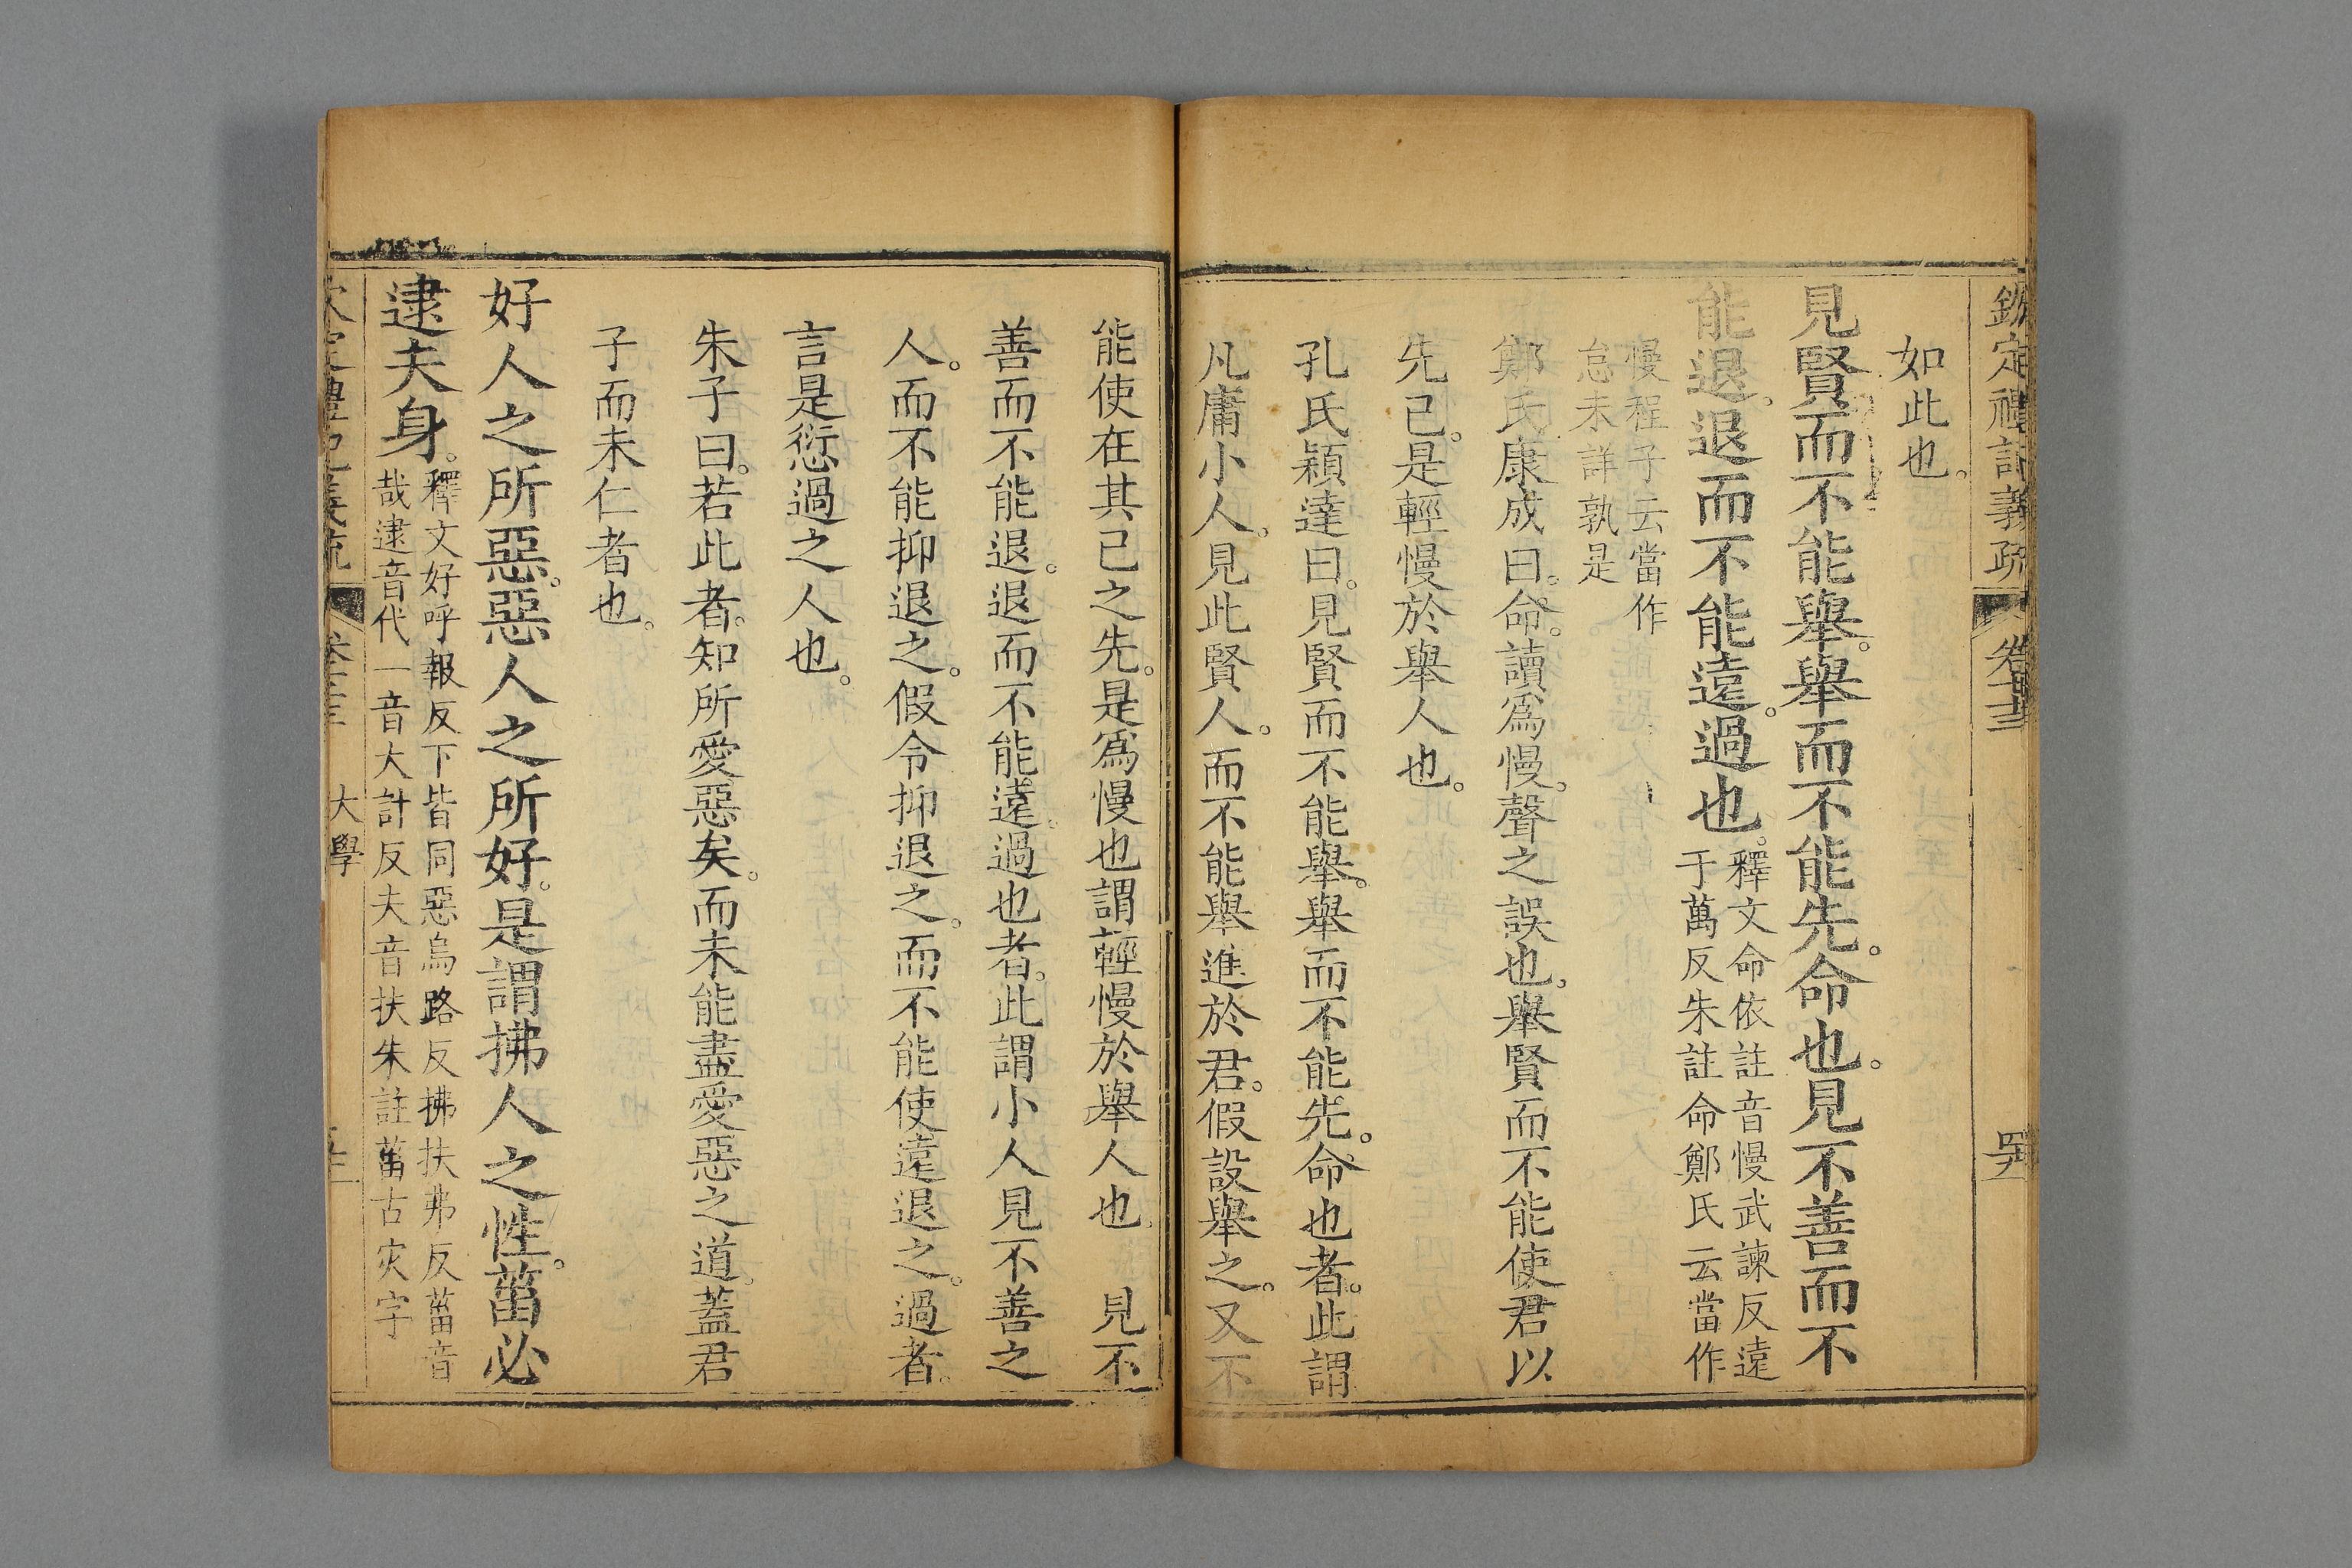 欽定禮記義疏 卷七十三
如此也。
見賢而不能舉。舉而不能先。命也。見不善而不
能退。退而不能遠。過也。釋文命依註音慢武諫反遠
于萬反朱註命鄭氏云當作
慢程子云當作
怠未詳孰是
鄭氏康成曰。命。讀爲慢。聲之誤也。舉賢而不能使君以
先己。是輕慢於舉人也。
孔氏穎達曰。見賢而不能舉。舉而不能先。命也者。此謂
凡庸小人。見此賢人。而不能舉進於君。假設舉之。又不
能使在其己之先。是爲慢也謂輕慢於舉人也 見不
善而不能退。退而不能遠。過也者。此謂小人見不善之
人。而不能抑退之。假令抑退之。而不能使遠退之。過者。
言是愆過之人也。
朱子曰。若此者。知所愛惡矣。而未能盡愛惡之道。蓋君
子而未仁者也。
好人之所惡。惡人之所好。是謂拂人之性。菑必
逮夫身。釋文好呼報反下皆同惡烏路反拂扶弗反菑音
哉逮音代一音大計反夫音扶朱註菑古灾字
大學